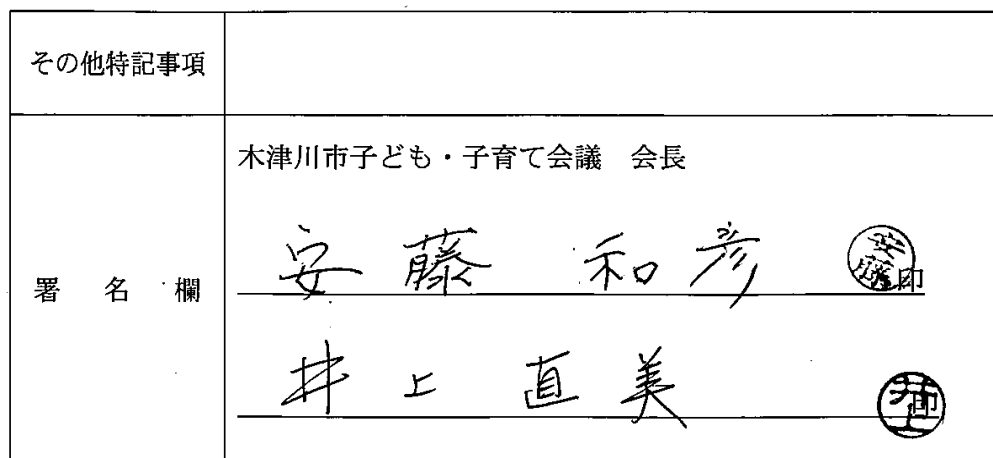 その他特記事項
木津川市子ども・子育て会議 会長
署名欄
安藤和彦 安藤 印
井上直美 井上 印